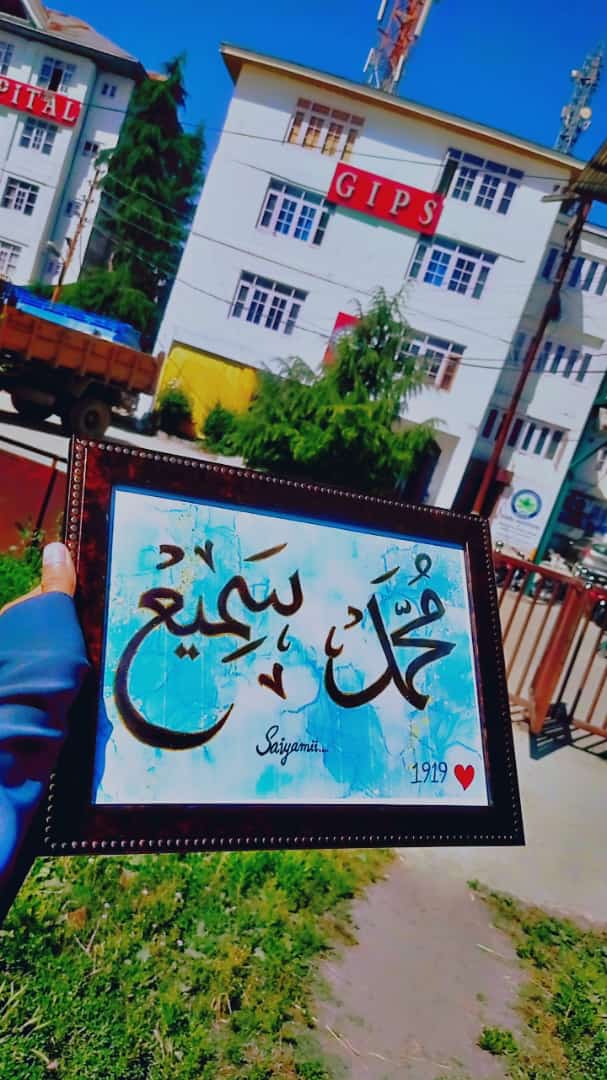 PITAL
GIPS
مُحَمَّد سَمِيع
Saiyamii...
1919